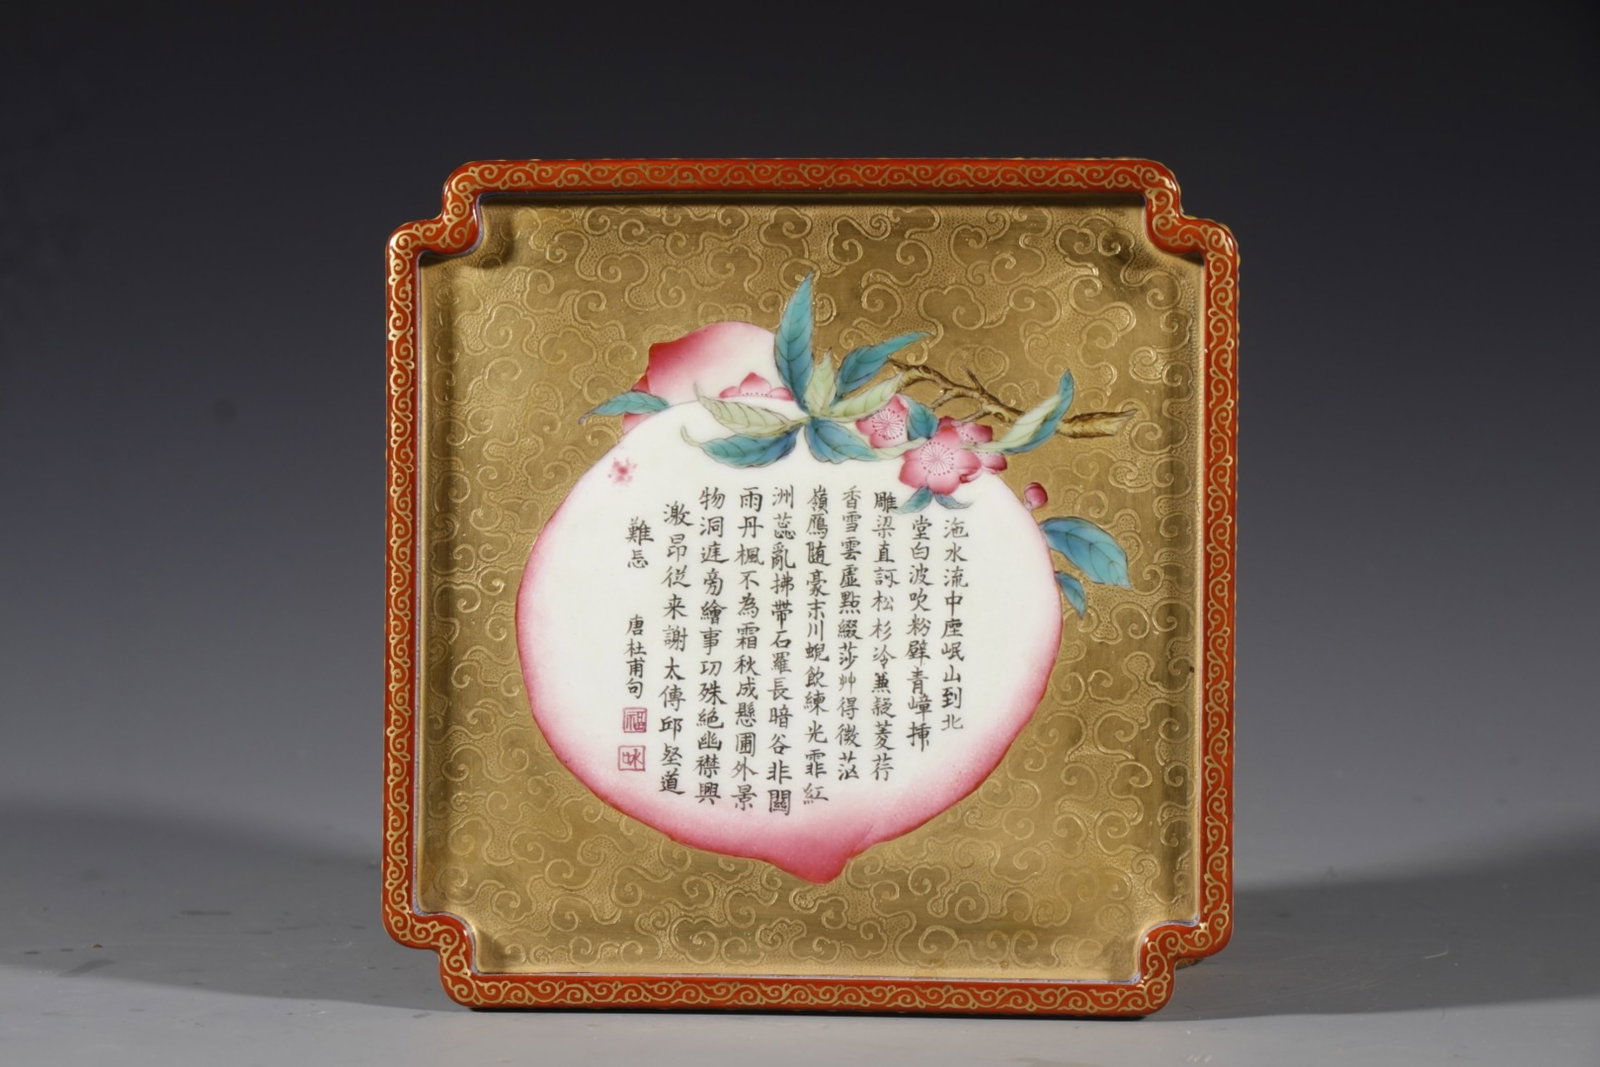 沲水流中座岷山到北
堂白波吹粉壁青嶂揷
雕梁直訝松杉冷兼疑菱荇
香雪雲虛點綴莎艸得微茫
嶺鴈随豪末川蜺飲練光霏紅
洲蕊亂拂帶石羅長暗谷非關
雨丹楓不為霜秋成懸圃外景
物洞庭旁繪事功殊絕幽襟興
激昂従来謝太傅邱壑道
難忘
唐杜甫句
福